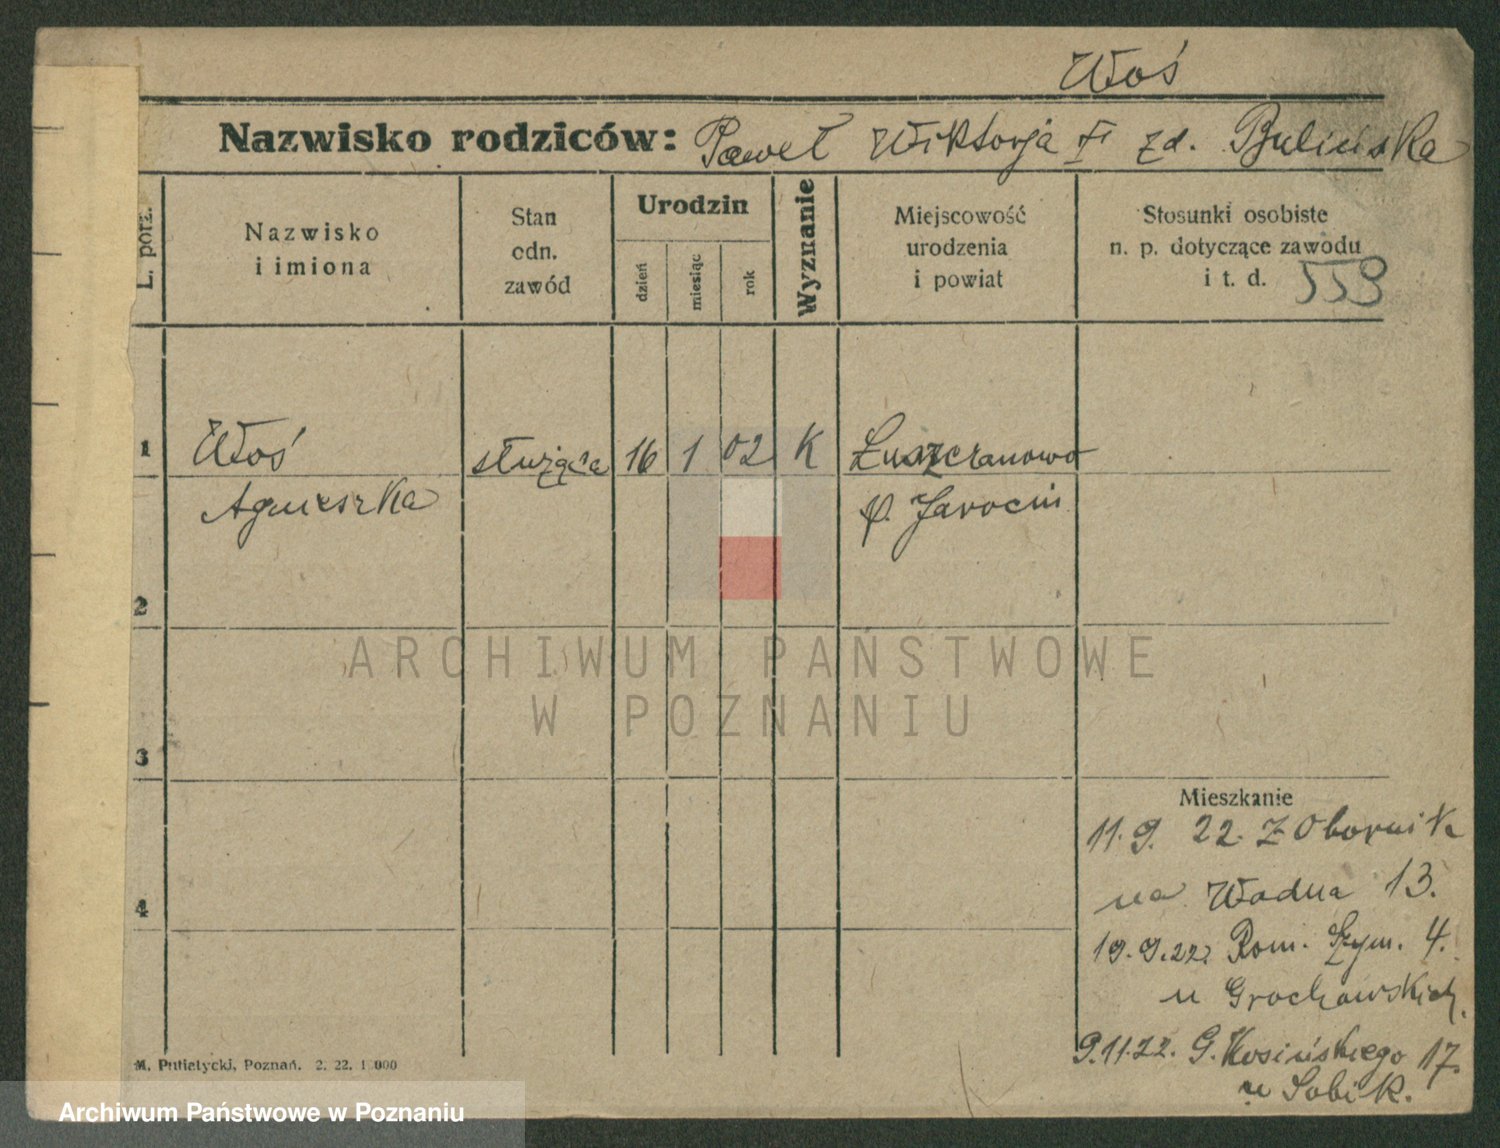 Włoś
Nazwisko rodziców: Paweł Wiktorja zd. Bulińska
L. porz.
Nazwisko
i imiona
Stan
odn.
zawód
Urodzin
dzień
miesiąc
rok
Wyznanie
Miejscowość
urodzenia
i powiat
Stosunki osobiste
n. p. dotyczące zawodu
i t. d. 559
1 Włoś służąca 16 1 02 K Łuszczanowo
Agnieszka p. Jarocin
2
3
4
Mieszkanie
11.9. 22. z Obornik
na Wodna 13.
19.9.22. Rom. Szym. 4.
u Grochowskich.
9.11.22. G. Kosińskiego 17.
u Sobik.
M. Putiatycki, Poznań. 2. 22. 1 000
ARCHIWUM PAŃSTWOWE
W POZNANIU
Archiwum Państwowe w Poznaniu